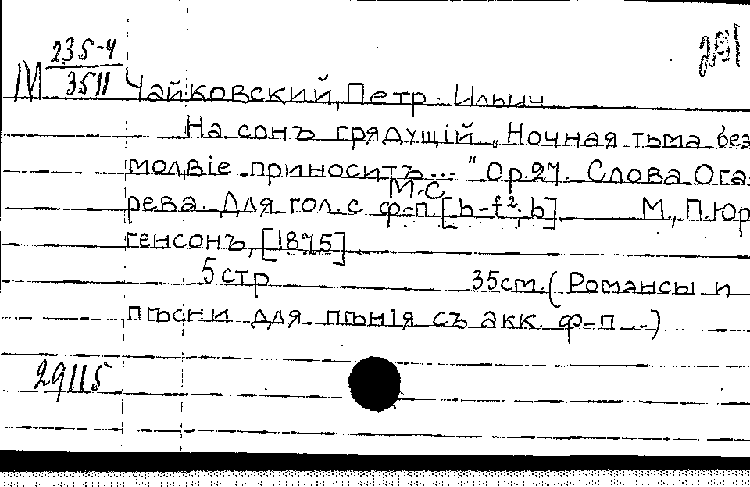 М 235-4/3511
251
Чайковский, Петр Ильич
На сонъ грядущій „Ночная тьма без
молвіе приноситъ..." Op. 27. Слова Ога-
М.С.
рева. Для гол. с ф-п [h-f²; h] М., П. Юр
генсонъ, [1875]
5 стр 35 cm. (Романсы и
пѣсни для пѣнія съ акк. ф-п...)
29115